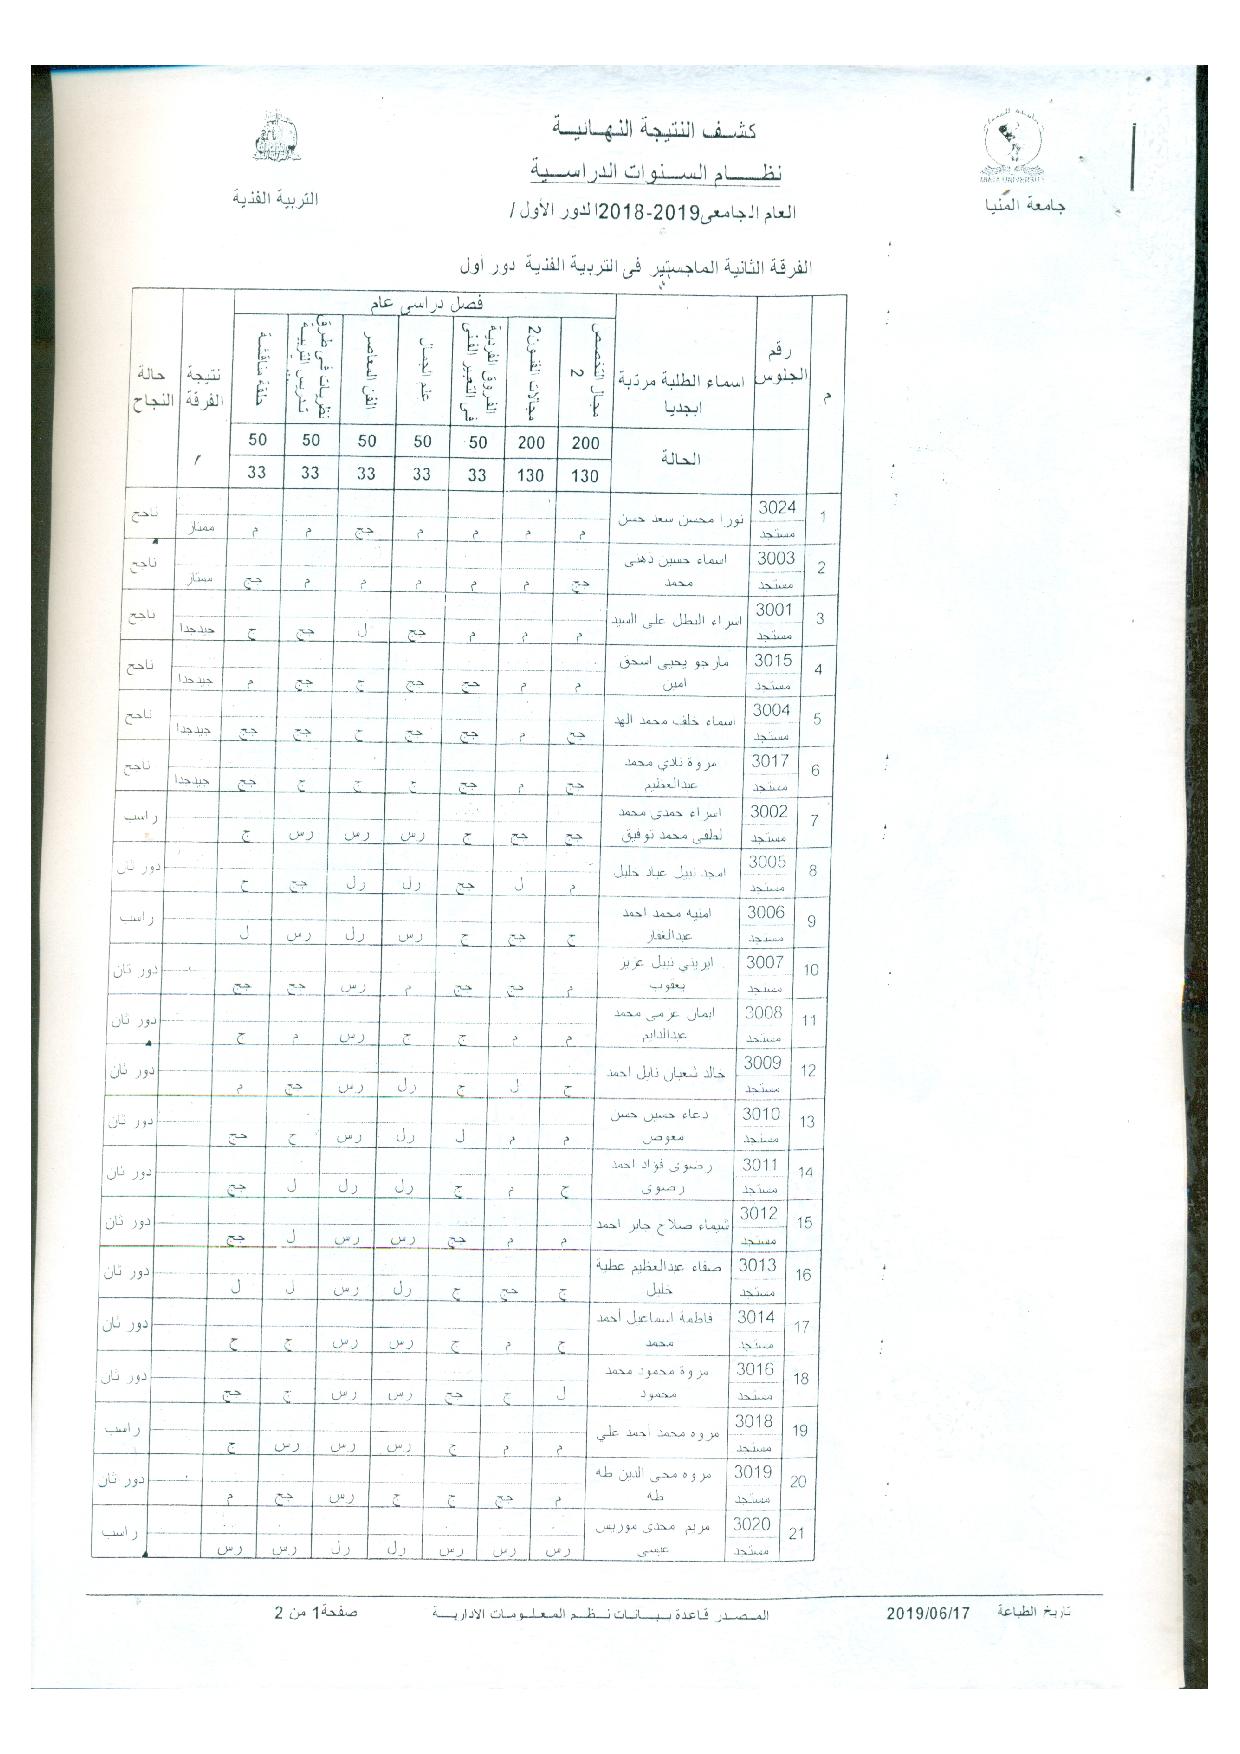 كشف النتيجة النهائية
نظام السنوات الدراسية
العام الجامعى2019-2018الدور الأول /
جامعة المنيا
MINIA UNIVERSITY
التربية الفنية
الفرقة الثانية الماجستير فى التربية الفنية دور أول
م رقم الجلوس اسماء الطلبة مرتبة ابجديا فصل دراسى عام نتيجة الفرقة حالة النجاح
مجال التخصص 2 مجالات الفنون2 الفروق الفردية فى التعبير الفنى علم الجمال الفن المعاصر نظريات فى طرق تدريس التربية حلقة مناقشة
الحالة 200 200 50 50 50 50 50
130 130 33 33 33 33 33
1 3024 مستجد نورا محسن سعد حسن م م م م جج م م ممتاز ناجح
2 3003 مستجد اسماء حسين دهنى محمد جج م م م م م جج ممتاز ناجح
3 3001 مستجد اسراء البطل على السيد م م م جج ل جج ج جيدجدا ناجح
4 3015 مستجد مارجو يحيى اسحق امين م م جج جج ج جج م جيدجدا ناجح
5 3004 مستجد اسماء خلف محمد جج م جج جج ج جج جج جيدجدا ناجح
6 3017 مستجد مروة نادي محمد عبدالعظيم جج م جج ج ج ج جج جيدجدا ناجح
7 3002 مستجد اسراء حمدى محمد لطفى محمد توفيق جج جج ج رس رس رس ج راسب
8 3005 مستجد امجد نبيل عياد خليل م ل جج رل رل جج ج دور ثان
9 3006 مستجد امنيه محمد احمد عبدالغفار ج جج ج رس رل رس ل راسب
10 3007 مستجد ايريني نبيل عزيز يعقوب م جج جج م رس جج جج دور ثان
11 3008 مستجد ايمان عزمى محمد عبدالدايم م م ج ج رس م ج دور ثان
12 3009 مستجد خالد شعبان نايل احمد ج ل ج رل رس جج م دور ثان
13 3010 مستجد دعاء حسين حسن معوض م م ل رل رس ج جج دور ثان
14 3011 مستجد رضوى فؤاد احمد رضوى ج م ج رل رل ل جج دور ثان
15 3012 مستجد شيماء صلاح جابر احمد م م جج رس رس ل جج دور ثان
16 3013 مستجد صفاء عبدالعظيم عطية خليل ج جج ج رل رس ل ل دور ثان
17 3014 مستجد فاطمة اسماعيل أحمد محمد ج م ج رس رس ج ج دور ثان
18 3016 مستجد مروة محمود محمد محمود ل ج جج رس رس ج جج دور ثان
19 3018 مستجد مروه محمد احمد علي م م ج رس رس رس ج راسب
20 3019 مستجد مروه محى الدين طه طه م جج ج ج رس جج م دور ثان
21 3020 مستجد مريم مجدى موريس عيسى رس رس رس رل رل رس رس راسب
تاريخ الطباعة 2019/06/17 المصدر قاعدة بيانات نظم المعلومات الادارية صفحة1 من 2